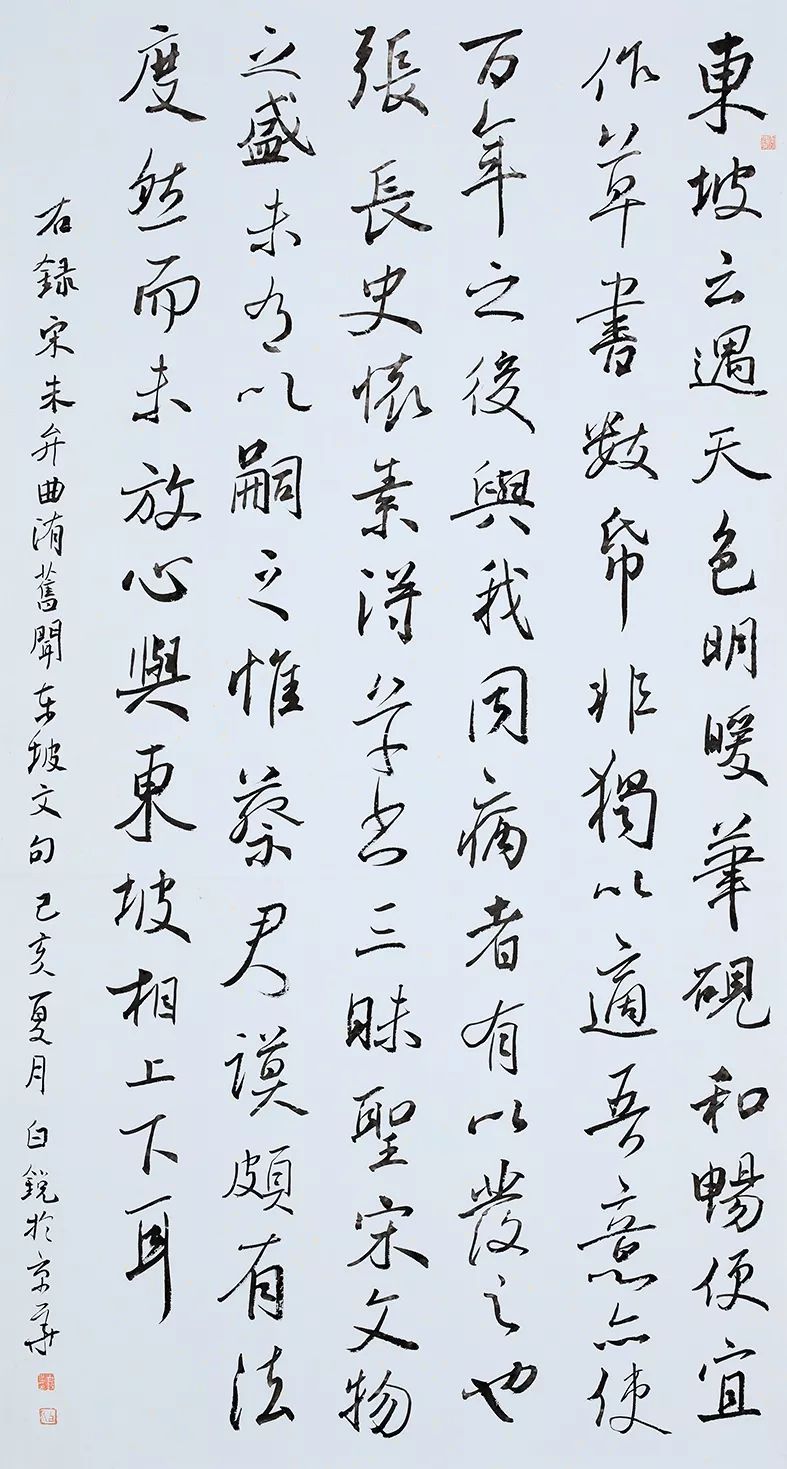 東坡云遇天色明暖筆硯和暢便宜
作草書數帋非獨以適吾意亦使
百年之後與我同病者有以發之也
張長史懷素得草书三昧聖宋文物
之盛未有以嗣之惟蔡君謨頗有法
度然而未放心與東坡相上下耳
右録宋朱弁曲洧舊聞东坡文句己亥夏月白鋭於京華